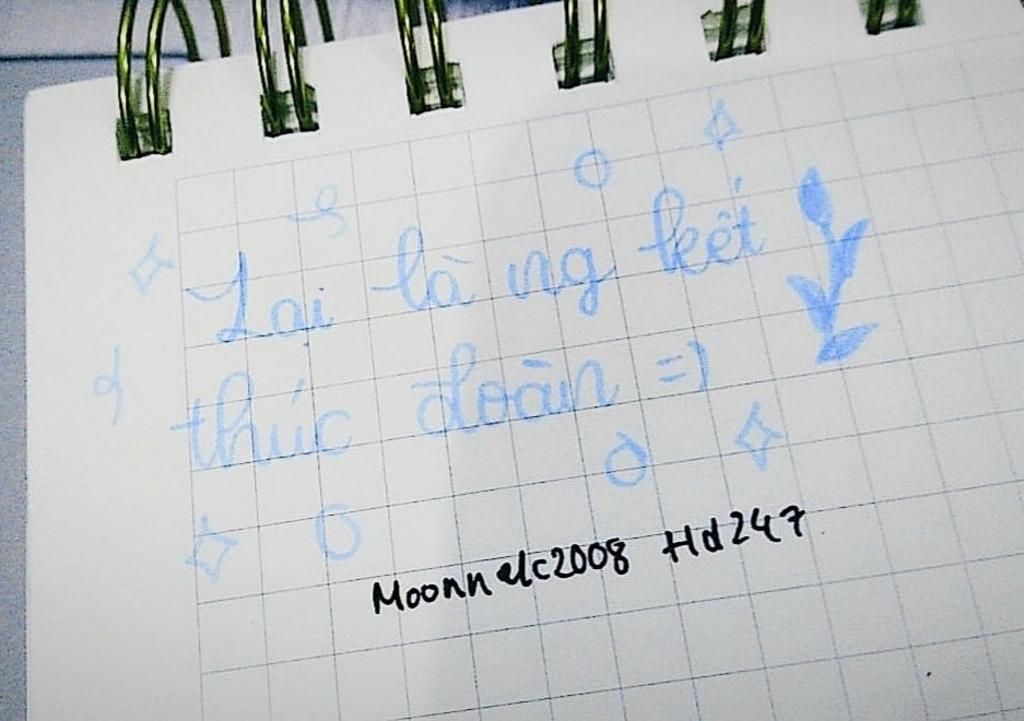 Lại là ng kết
thúc đoàn =)
Moonnalc2008 Hd247